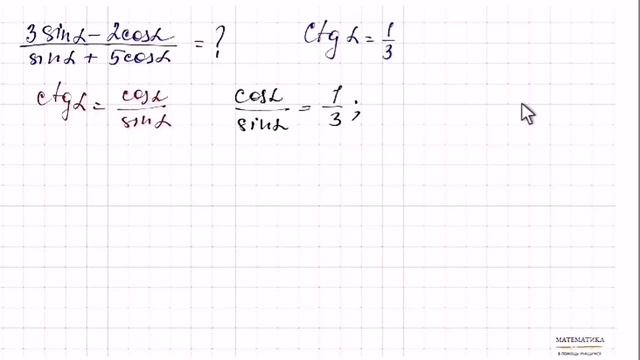 (3 sin α − 2 cos α)/(sin α + 5 cos α) = ?   ctg α = 1/3
ctg α = cos α/sin α   cos α/sin α = 1/3;
МАТЕМАТИКА
В ПОМОЩЬ УЧАЩИМСЯ